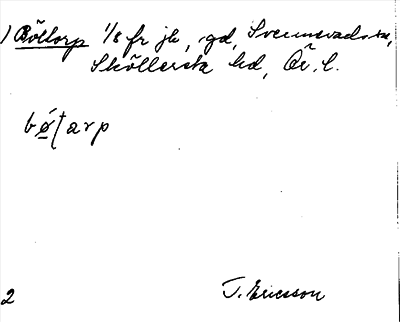 ) Böltorp 1/8 fr jh, gd, Svennevads sn,
Sköllersta hd, Ör. l.
bø̀ṭarp
2
T. Ericsson